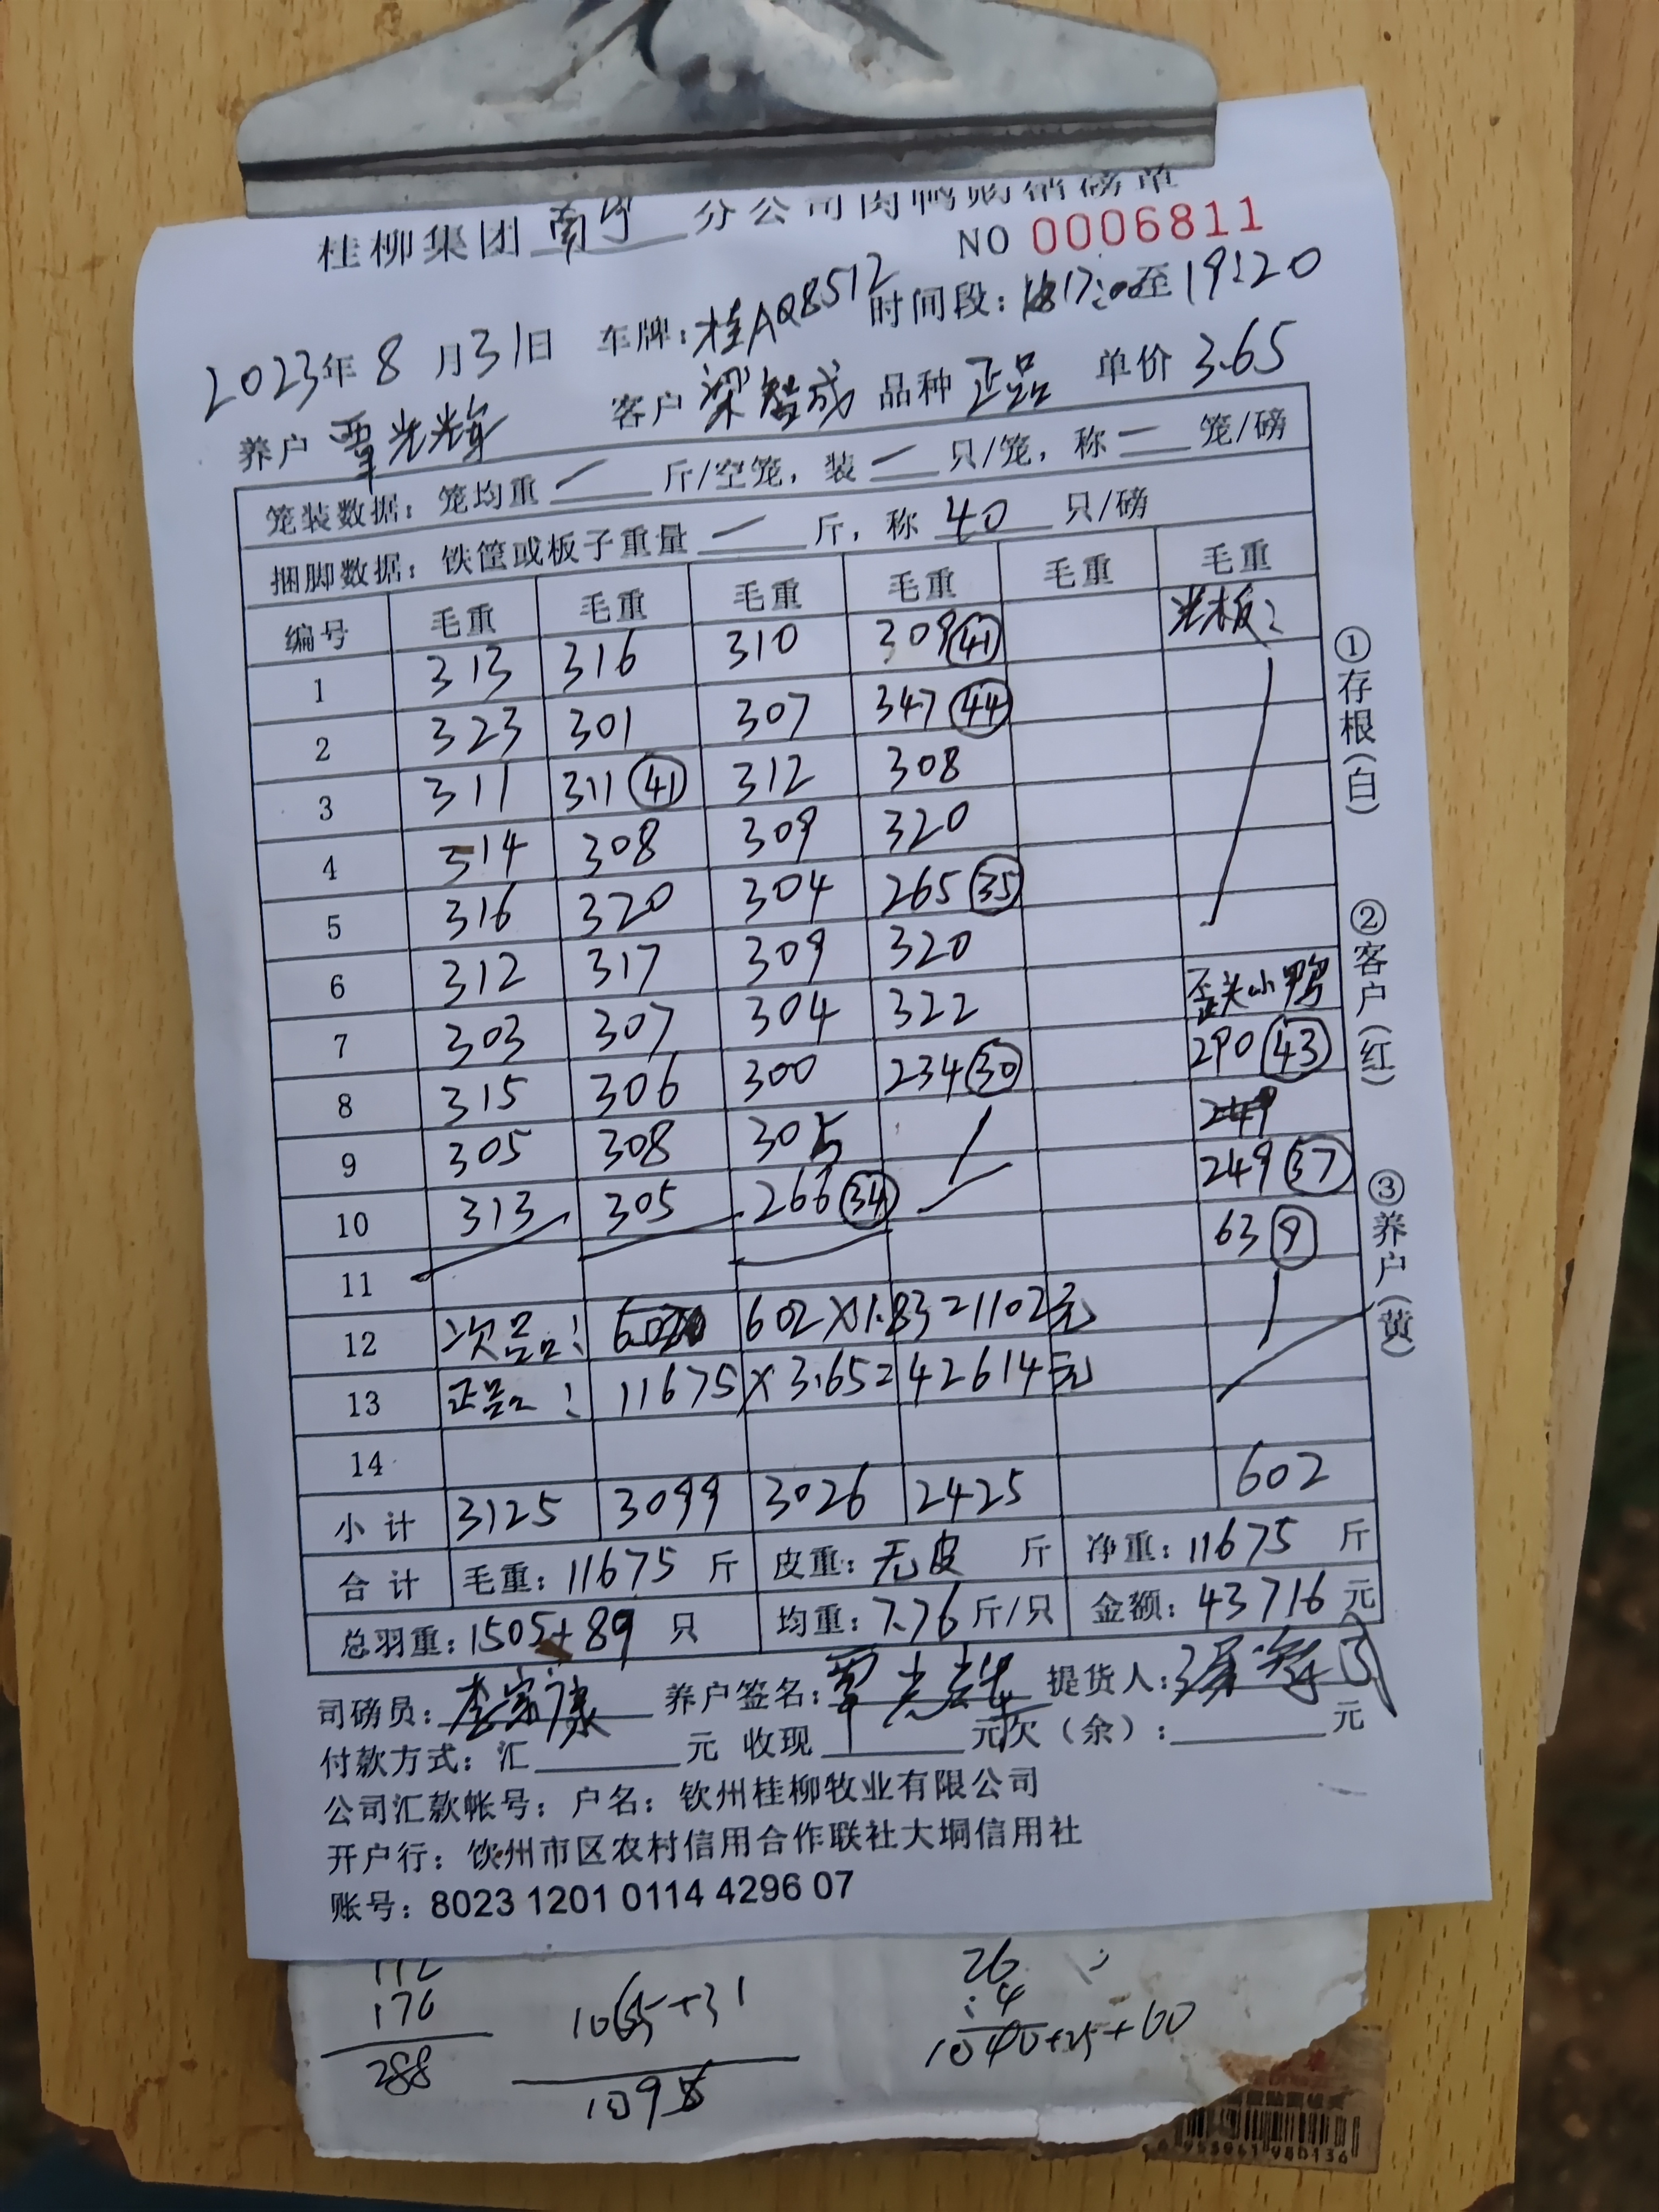 桂柳集团 南宁 分公司肉鸭购销磅单
NO 0006811
2023年 8 月 31日 车牌: 桂AQ8512 时间段: 17:00至19:20
养户 覃光辉 客户 梁智成 品种 正品 单价 3.65
笼装数据: 笼均重 一 斤/空笼, 装 一 只/笼, 称 一 笼/磅
捆脚数据: 铁筐或板子重量 一 斤, 称 40 只/磅
编号 毛重 毛重 毛重 毛重 毛重 毛重
光板:
1 313 316 310 309 41
2 323 301 307 347 44
3 311 311 41 312 308
4 314 308 309 320
5 316 320 304 265 35
6 312 317 309 320 歪头小鸭
7 303 307 304 322 290 43
8 315 306 300 234 30 249
9 305 308 305 249 37
10 313 305 266 34 63 9
11
12 次品: 602 602×1.83=1102元
13 正品: 11675×3.65=42614元
14
小计 3125 3099 3026 2425 602
合计 毛重: 11675 斤 皮重: 无皮 斤 净重: 11675 斤
总羽重: 1505+89 只 均重: 7.76斤/只 金额: 43716 元
司磅员: 李家康 养户签名: 覃光辉 提货人:
付款方式: 汇 元 收现 元 欠(余): 元
公司汇款帐号: 户名: 钦州桂柳牧业有限公司
开户行: 钦州市区农村信用合作联社大垌信用社
账号: 8023 1201 0114 4296 07
①存根(白)
②客户(红)
③养户(黄)
112
176
288
1065+31
1095
26
4
1040+25+60